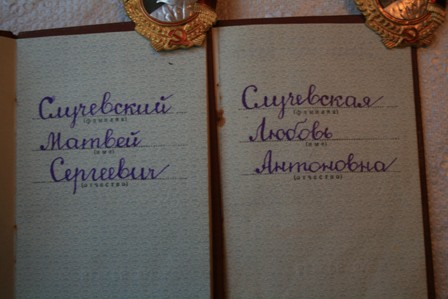 Случевский
(фамилия)
Матвей
(имя)
Сергеевич
(отчество)
Случевская
(фамилия)
Любовь
(имя)
Антоновна
(отчество)